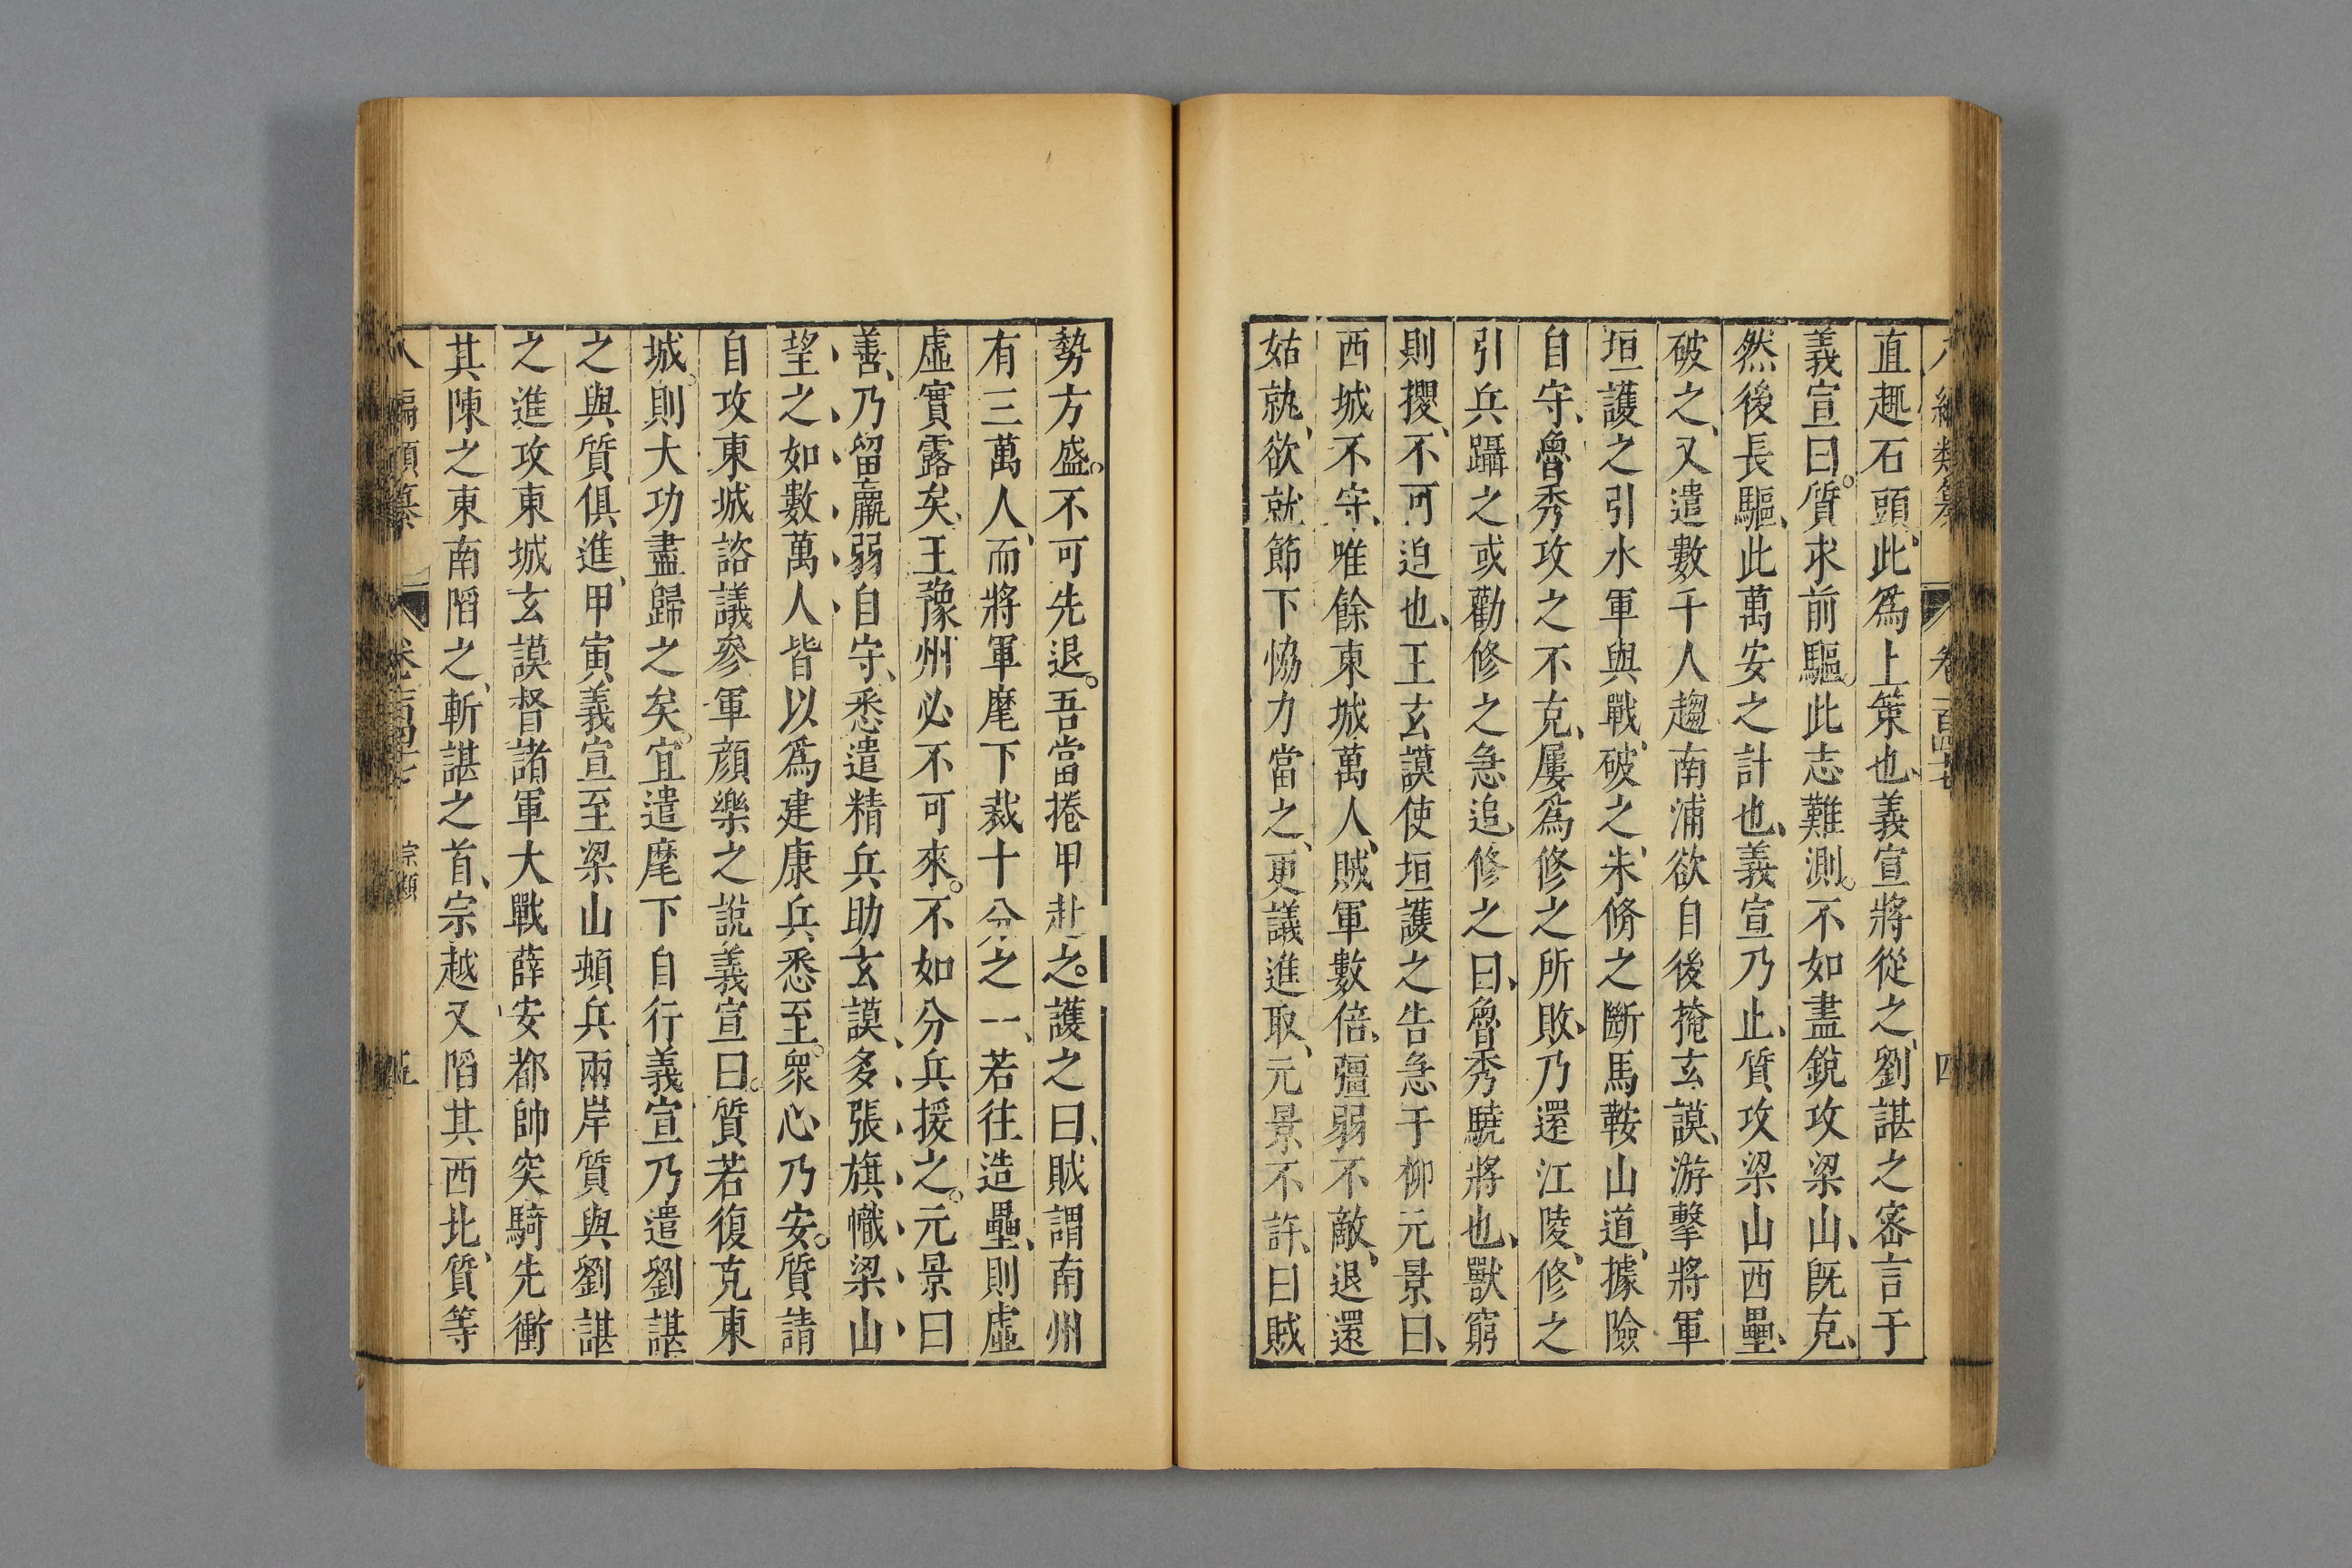 直趣石頭、此為上策也、義宣將從之、劉諶之密言于
義宣曰。質求前驅。此志難測。不如盡銳攻梁山、既克、
然後長驅、此萬安之計也、義宣乃止、質攻梁山西壘、
破之、又遣數千人趨南浦欲自後掩玄謨、游擊將軍
垣護之引水軍與戰、破之、朱脩之斷馬鞍山道、據險
自守、魯秀攻之不克、屢為修之所敗、乃還江陵、修之
引兵躡之或勸修之急追、修之曰、魯秀驍將也、獸窮
則攫、不可迫也、王玄謨使垣護之告急于柳元景曰、
西城不守、唯餘東城萬人、賊軍數倍、彊弱不敵、退還
姑孰、欲就節下協力當之、更議進取、元景不許、曰賊
勢方盛。不可先退。吾當捲甲赴之。護之曰、賊謂南州
有三萬人、而將軍麾下裁十分之一、若往造壘、則虛
虛實露矣、王豫州必不可來。不如分兵援之。元景曰
善、乃留羸弱自守、悉遣精兵助玄謨、多張旗幟、梁山
望之如數萬人皆以為建康兵悉至。衆心乃安。質請
自攻東城諮議參軍顏樂之說義宣曰。質若復克東
城。則大功盡歸之矣。宜遣麾下自行義宣乃遣劉諶
之與質俱進、甲寅義宣至梁山頓兵兩岸質與劉諶
之進攻東城玄謨督諸軍大戰薛安都帥突騎先衝
其陳之東南陷之、斬諶之首、宗越又陷其西北、質等
編類纂 卷一百四十七 宗類 五